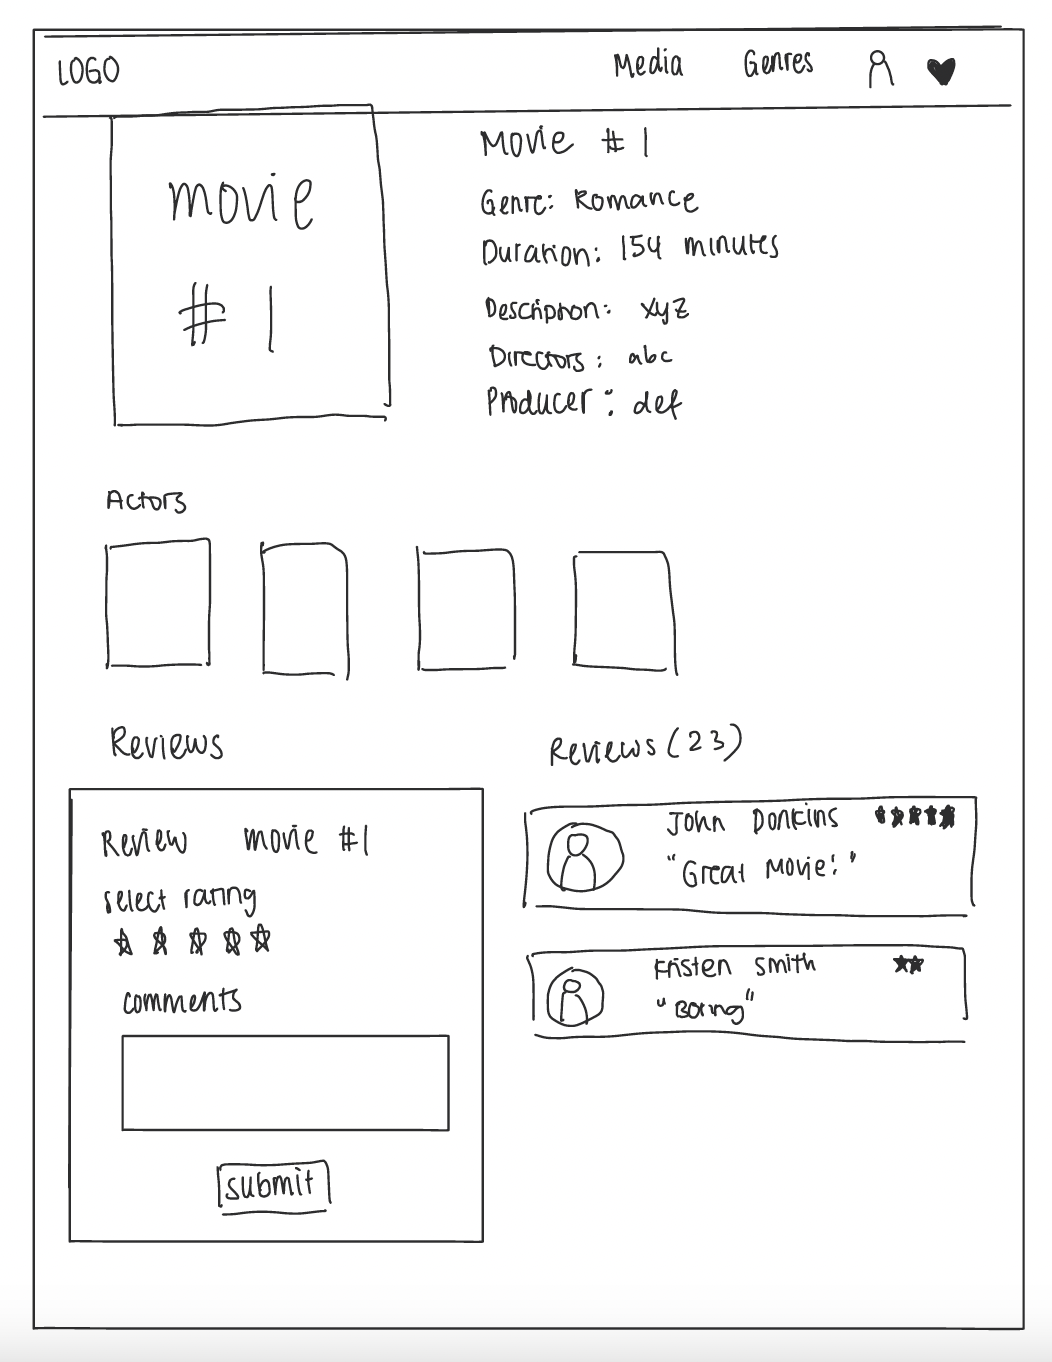 LOGO Media Genres
movie
# 1
Movie # 1
Genre: Romance
Duration: 154 minutes
Description: xyz
Directors: abc
Producer: def
Actors
Reviews
Review movie #1
select rating
comments
submit
Reviews (23)
John Donkins
"Great Movie!"
Kristen Smith
"Boring"